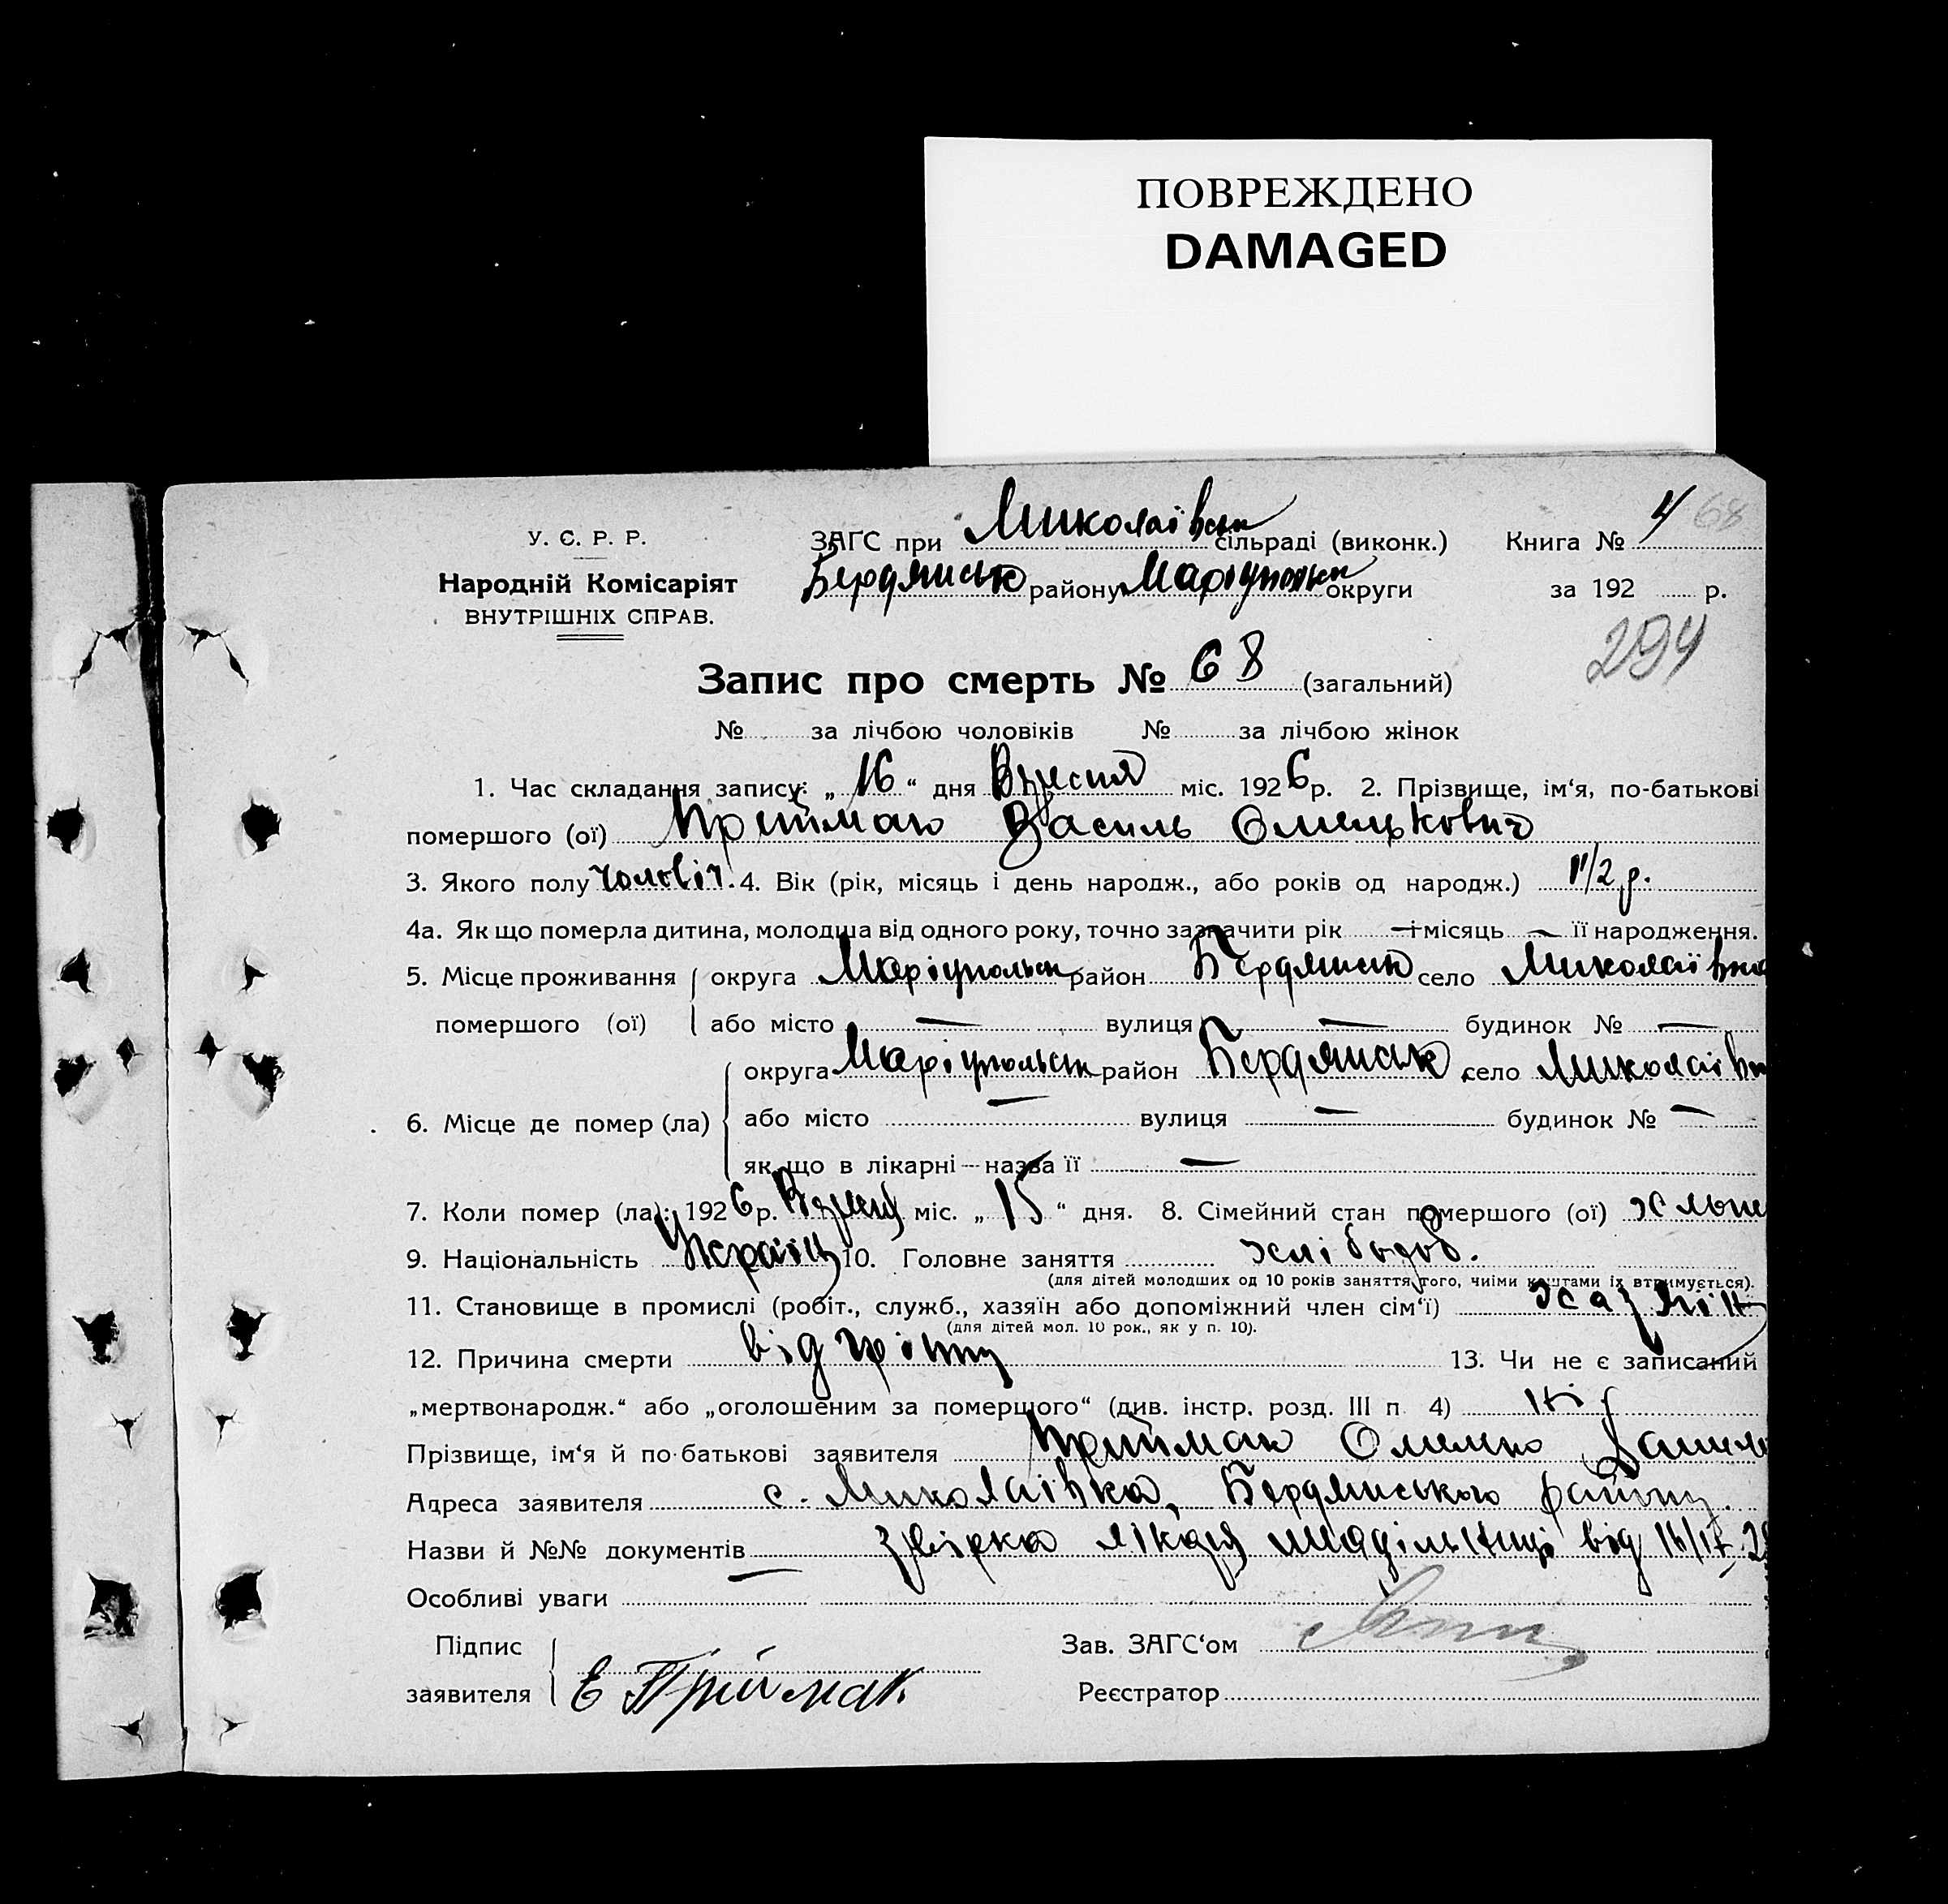 ПОВРЕЖДЕНО
DAMAGED
У. С. Р. Р.
Народній Комісаріят
ВНУТРІШНІХ СПРАВ.
ЗАГС при Миколаївськ сільраді (виконк.) Книга № 4 68
Бердянськ району Маріупольськ округи за 192 р.
294
Запис про смерть № 68 (загальний)
№ за лічбою чоловіків № за лічбою жінок
1. Час складання запису: „16“ дня Вересня міс. 1926 р. 2. Прізвище, ім‘я, по-батькові
помершого (ої) Приймак Василь Омелькович
3. Якого полу чоловіч. 4. Вік (рік, місяць і день народж., або років од народж.) 1 1/2 р.
4а. Як що померла дитина, молодша від одного року, точно зазначити рік — місяць — її народження.
5. Місце проживання округа Маріупольськ район Бердянськ село Миколаївка
помершого (ої) або місто — вулиця — будинок № —
округа Маріупольськ район Бердянськ село Миколаївк
6. Місце де помер (ла) або місто — вулиця — будинок № —
як що в лікарні — назва її —
7. Коли помер (ла): 1926 р. міс. „15“ дня. 8. Сімейний стан помершого (ої)
9. Національність Україн 10. Головне заняття хлібороб.
(для дітей молодших од 10 років заняття того, чиіми коштами їх втримується).
11. Становище в промислі (робіт., служб., хазяїн або допоміжний член сім‘ї) хазяїн
(для дітей мол. 10 рок., як у п. 10).
12. Причина смерти від 13. Чи не є записаний
„мертвонародж.“ або „оголошеним за помершого“ (див. інстр. розд. III п 4) ні
Прізвище, ім‘я й по-батькові заявителя Приймак Омелько
Адреса заявителя с. Миколаївка, Бердянського району.
Назви й №№ документів лікаря від
Особливі уваги —
Підпис Зав. ЗАГС‘ом
заявителя Е Приймак Реєстратор